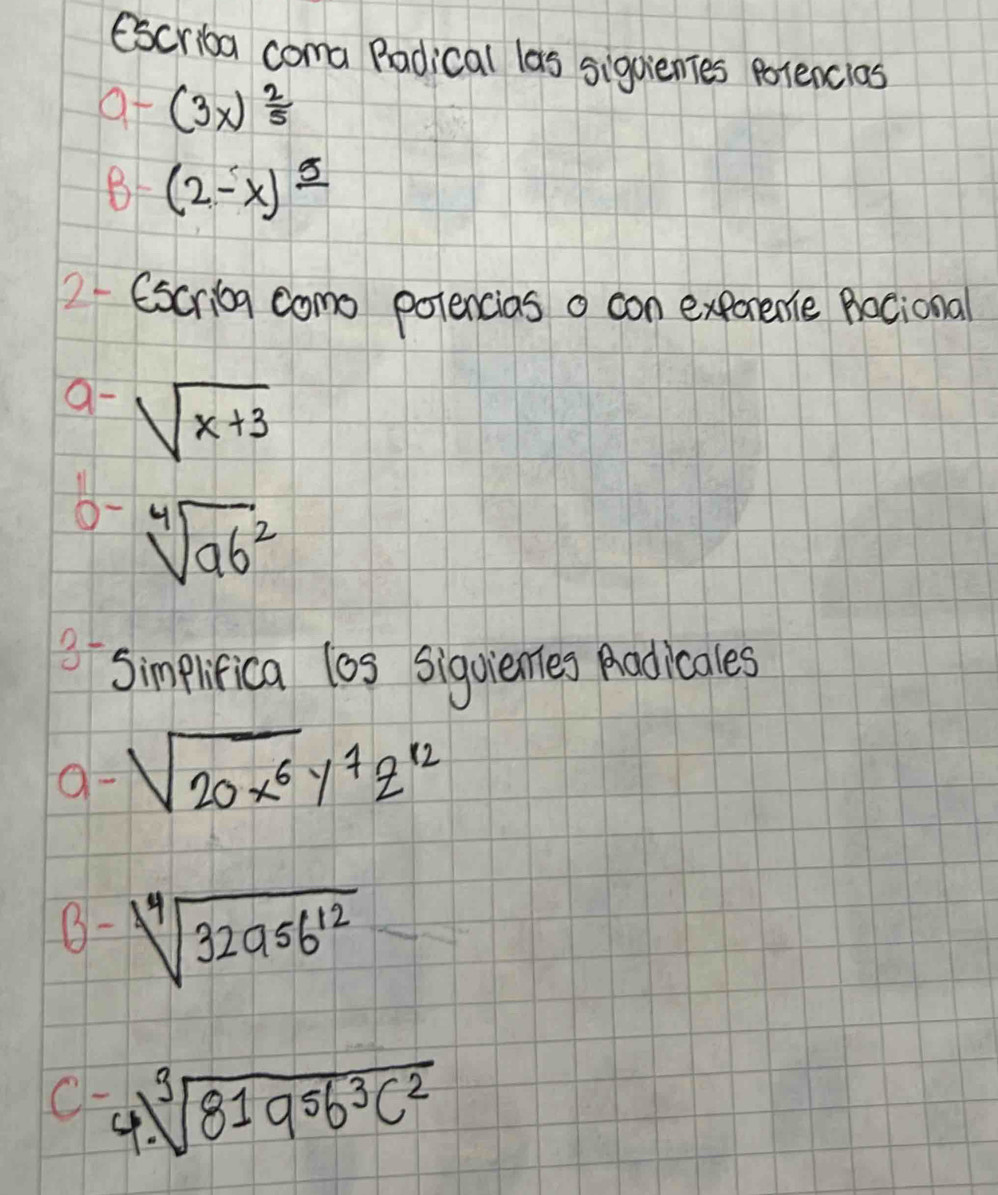 Escriba coma Radical las siguientes Potencias
a- (3x) 2/5
B- (2-x) 5
2- Escriba como potencias o con exponente Racional
a- √x+3
b- ⁴√ab²
3- Simplifica los siguientes Radicales
a- √20x⁶ y⁷ z¹²
B- ⁴√32a5b¹²
C- 4.³√81a5b³c²